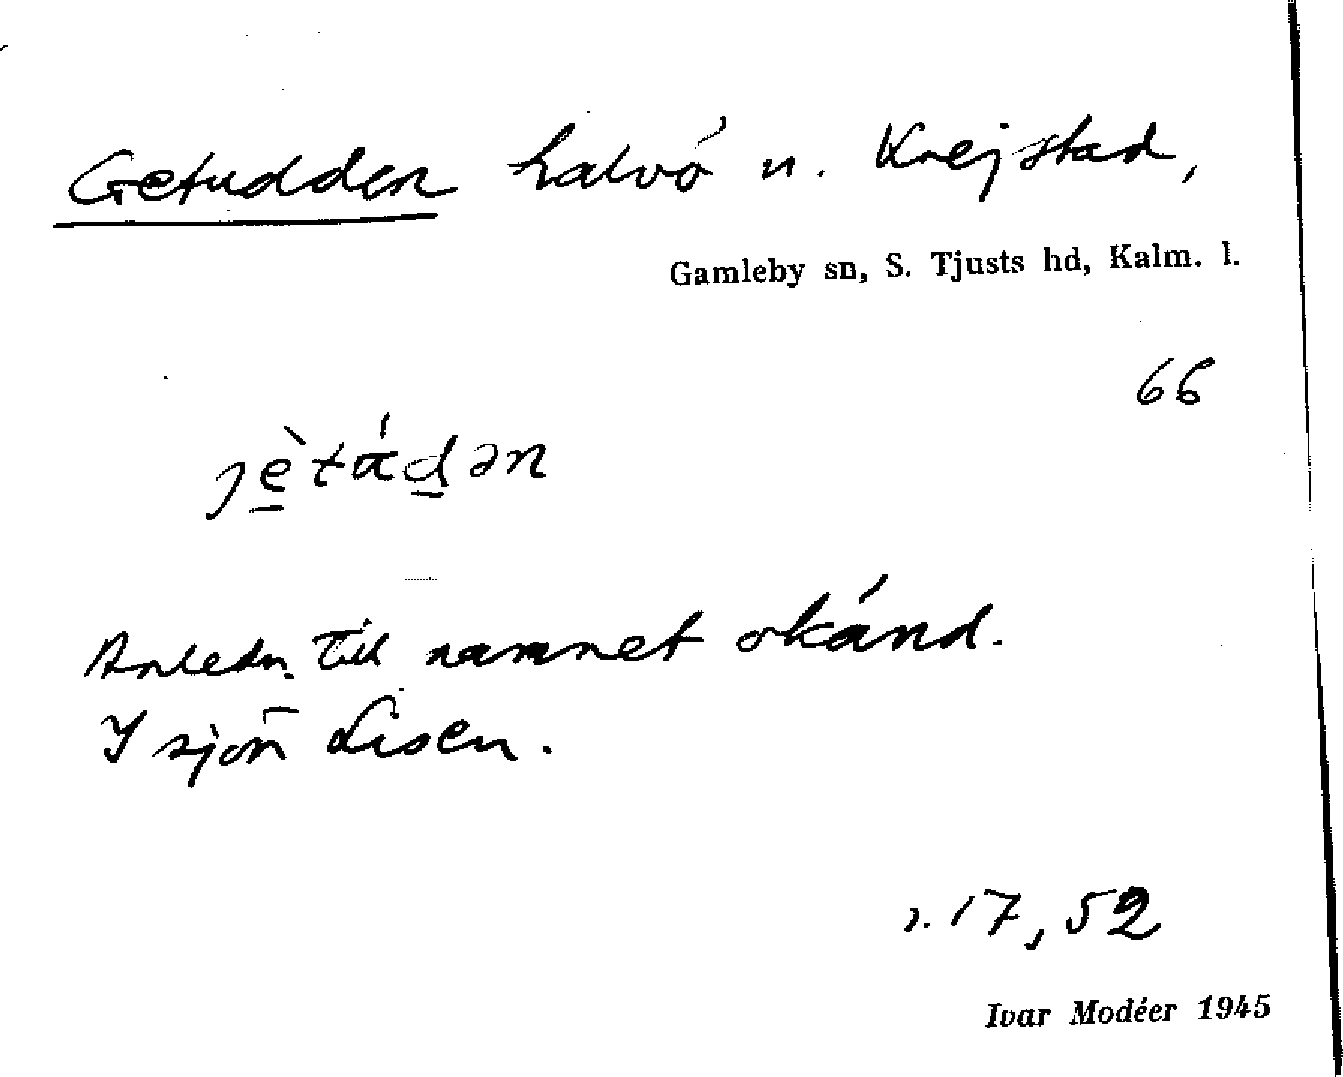 Getudden halvö u. Krejstad,
Gamleby sn, S. Tjusts hd, Kalm. l.
66
Anledn. till namnet okänd.
I sjön Lisen.
17, 52
Ivar Modéer 1945